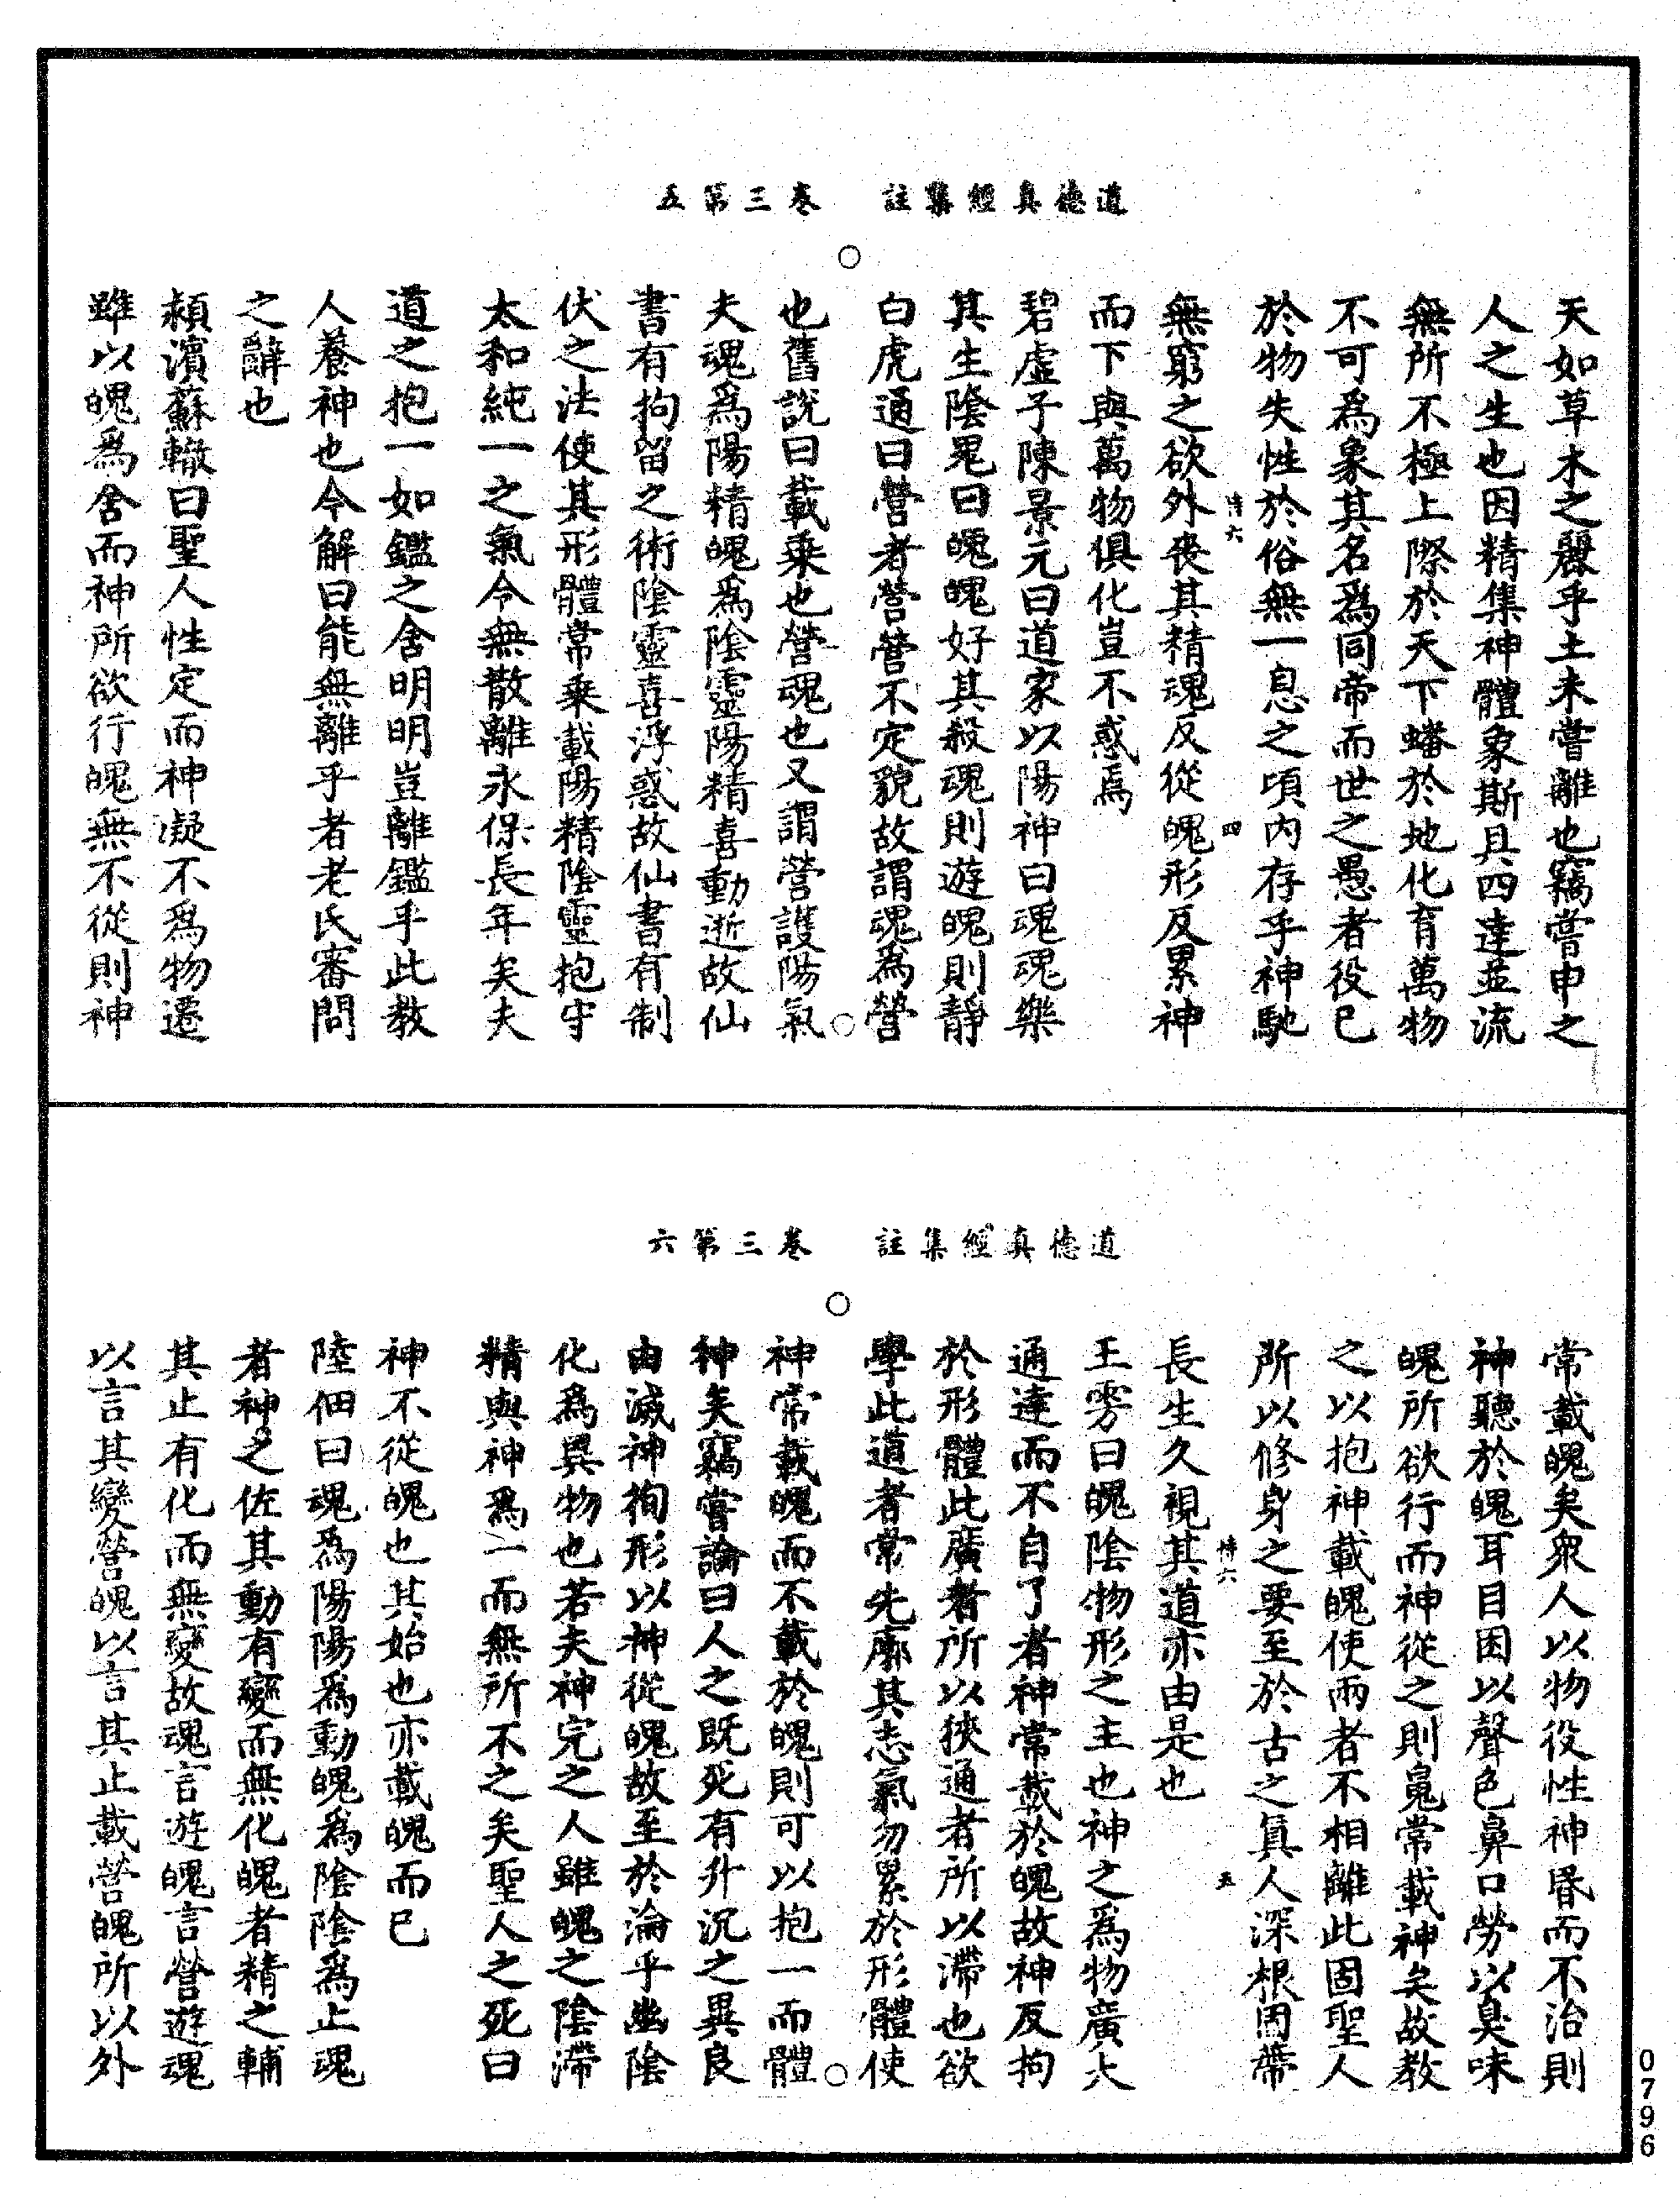 道德真經集註　卷三第五
天如草木之麗乎土未嘗離也竊嘗申之
人之生也因精集神體象斯具四達並流
無所不極上際於天下蟠於地化育萬物
不可爲象其名爲同帝而世之愚者役己
於物失性於俗無一息之頃內存乎神馳
無窮之欲外喪其精魂反從魄形反累神
而下與萬物俱化豈不惑焉
碧虛子陳景元曰道家以陽神曰魂魂樂
其生陰鬼曰魄魄好其殺魂則遊魄則靜
白虎通曰營者營營不定貌故謂魂爲營
也舊說曰載乘也營魂也又謂營護陽氣
夫魂爲陽精魄爲陰靈陽精喜動逝故仙
書有拘留之術陰靈喜浮惑故仙書有制
伏之法使其形體常乘載陽精陰靈抱守
太和純一之氣令無散離永保長年矣夫
道之抱一如鑑之舍明明豈離鑑乎此教
人養神也今解曰能無離乎者老氏審問
之辭也
潁濱蘇轍曰聖人性定而神凝不爲物遷
雖以魄爲舍而神所欲行魄無不從則神
道德真經集註　卷三第六
常載魄矣衆人以物役性神昏而不治則
神聽於魄耳目困以聲色鼻口勞以臭味
魄所欲行而神從之則魄常載神矣故教
之以抱神載魄使兩者不相離此固聖人
所以修身之要至於古之真人深根固蔕
長生久視其道亦由是也
王雱曰魄陰物形之主也神之爲物廣大
通達而不自了者神常載於魄故神反拘
於形體此廣者所以狹通者所以滯也欲
學此道者常先廓其志氣勿累於形體使
神常載魄而不載於魄則可以抱一而體
神矣竊嘗論曰人之既死有升沉之異良
由滅神徇形以神從魄故至於淪乎幽陰
化爲異物也若夫神完之人雖魄之陰滯
精與神爲一而無所不之矣聖人之死曰
神不從魄也其始也亦載魄而已
陸佃曰魂爲陽陽爲動魄爲陰陰爲止魂
者神之佐其動有變而無化魄者精之輔
其止有化而無變故魂言遊魄言營遊魂
以言其變營魄以言其止載營魄所以外
博六
四
博六
五
0796